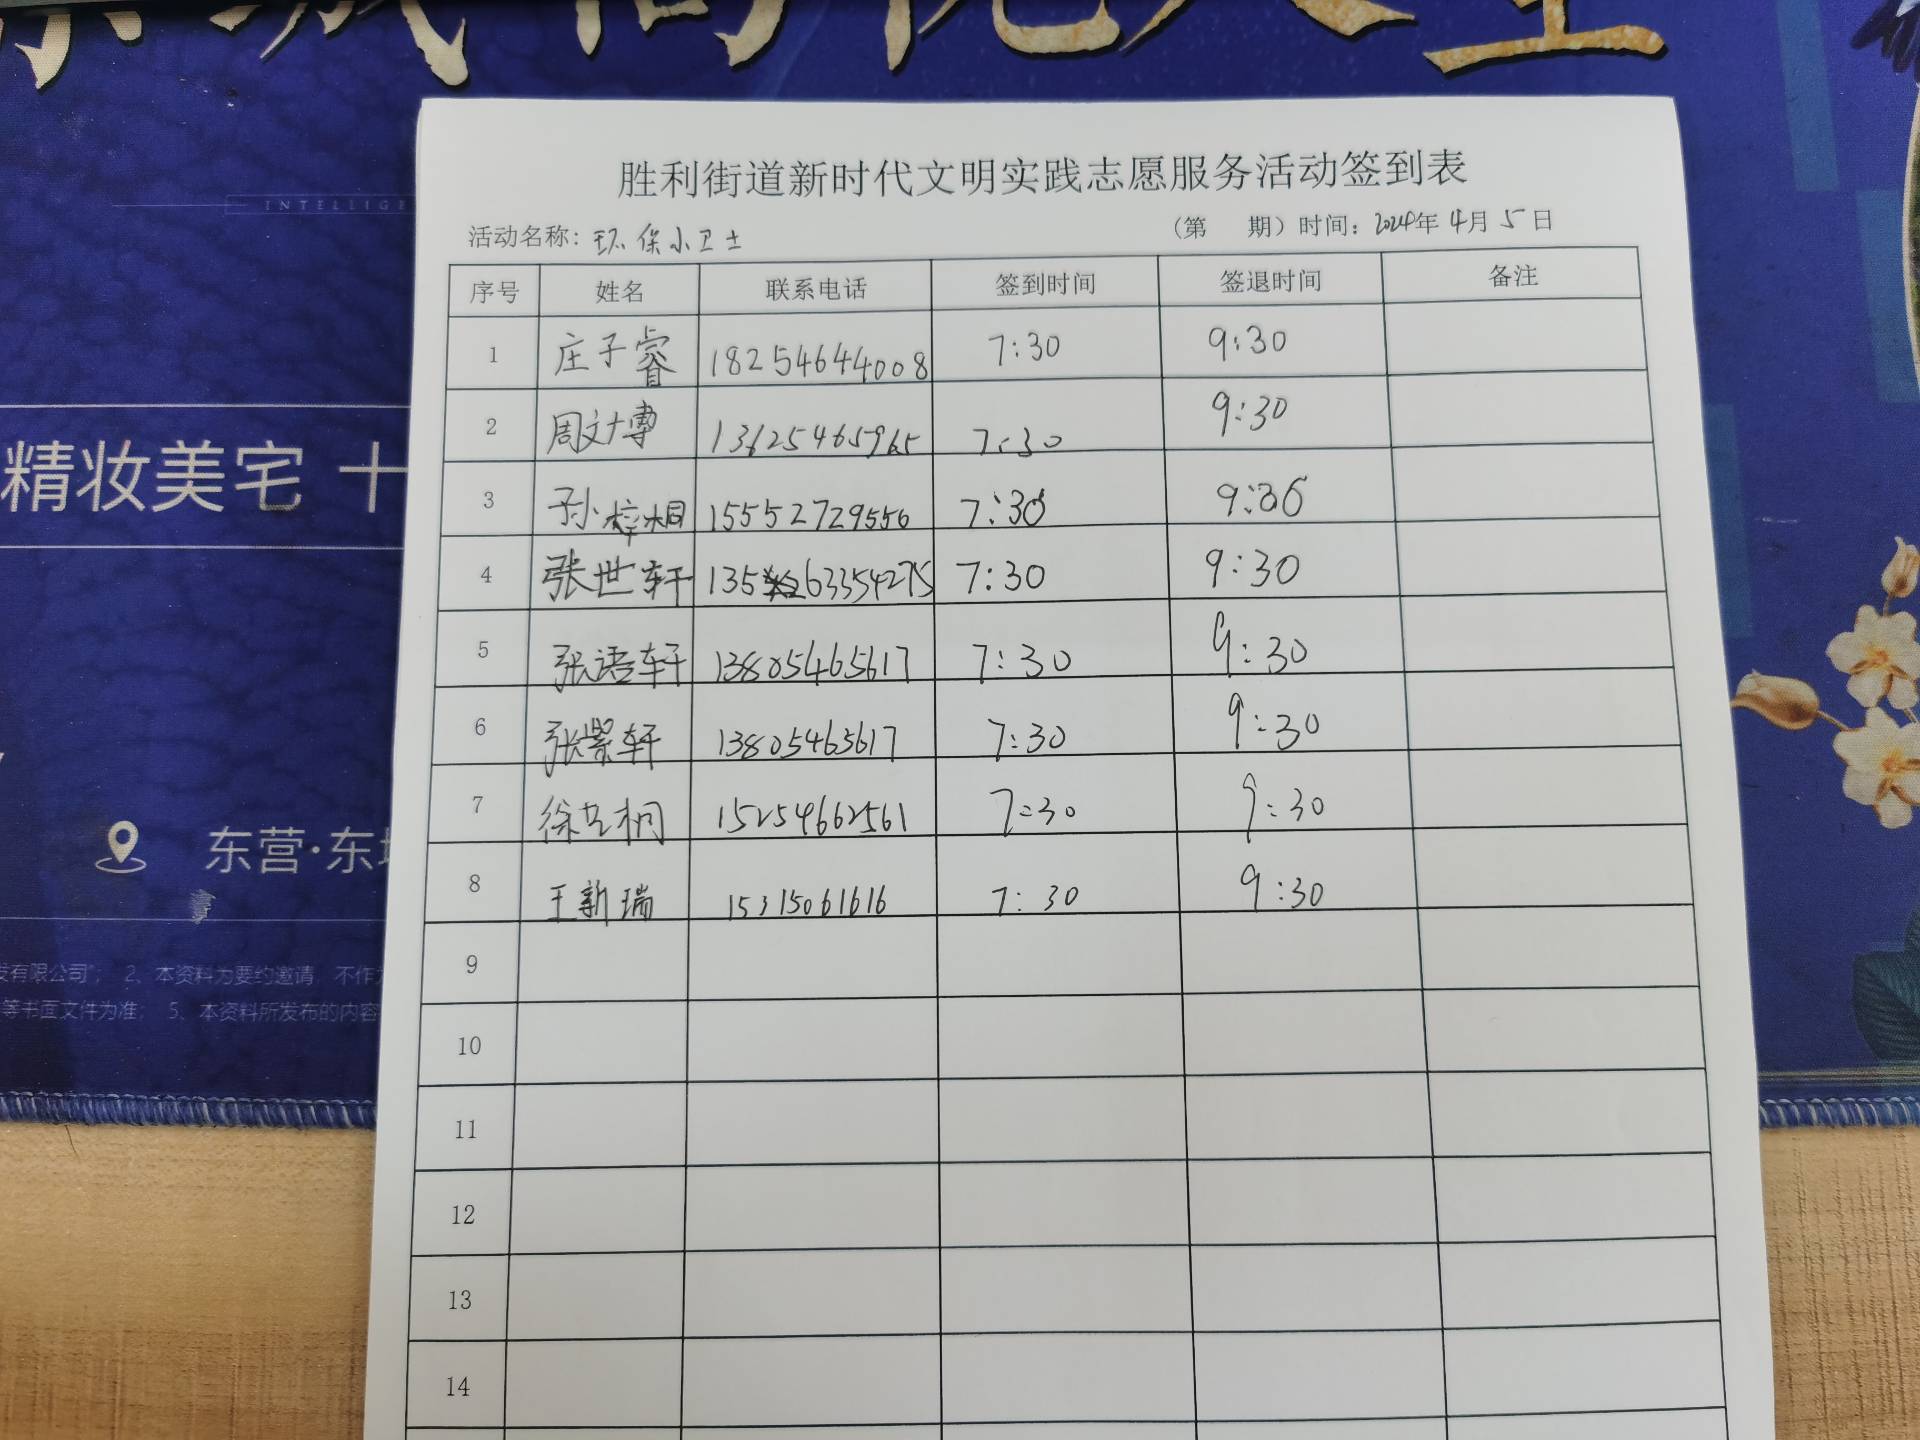 INTELLIGE
精妆美宅 十
东营·东城
发有限公司”; 2、本资料为要约邀请，不作
等书面文件为准; 5、本资料所发布的内容
胜利街道新时代文明实践志愿服务活动签到表
活动名称：环保小卫士 （第 期）时间：2024年4月5日
序号 姓名 联系电话 签到时间 签退时间 备注
1 庄子睿 18254644008 7:30 9:30
2 周文博 13625465965 7:30 9:30
3 孙梓桐 15552729556 7:30 9:30
4 张世轩 13563354275 7:30 9:30
5 张语轩 13805465617 7:30 9:30
6 张景轩 13805465617 7:30 9:30
7 徐艺桐 15254662561 7:30 9:30
8 王新瑞 15315061616 7:30 9:30
9
10
11
12
13
14